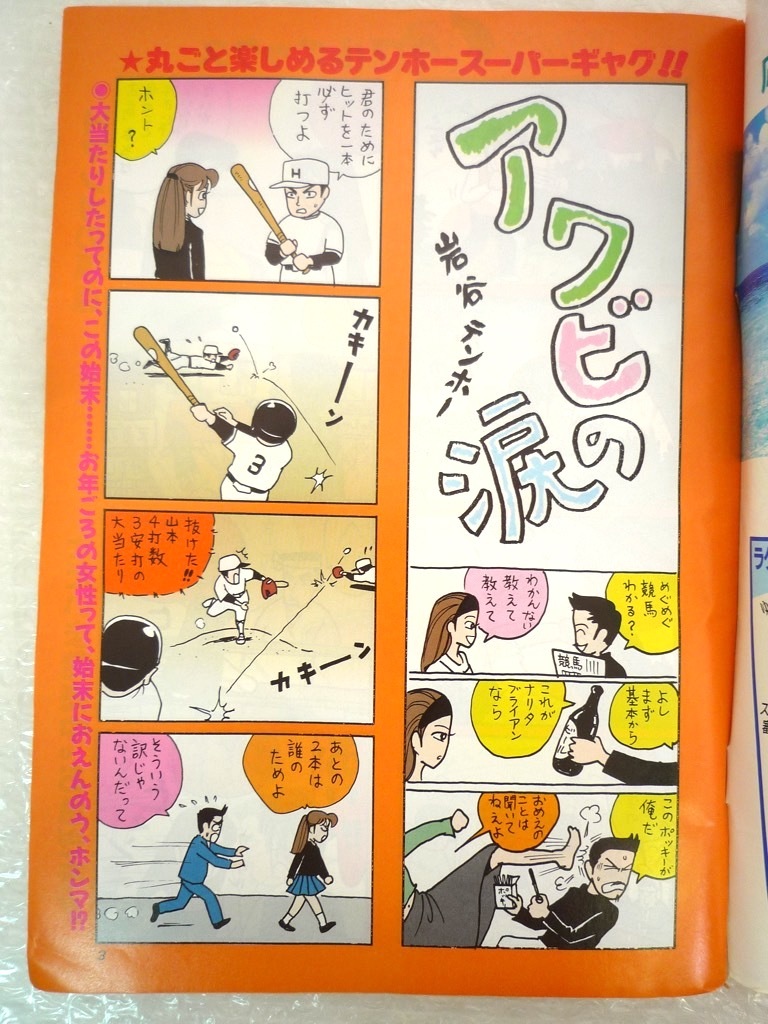 ★丸ごと楽しめるテンホースーパーギャグ!!
アワビの
涙
岩谷テンホー
めぐめぐ
競馬
わかる?
わかんない
教えて
教えて
競馬
よし
まず
基本から
これが
ナリタ
ブライアン
なら
このポッキーが
俺だ
おめえの
ことは
聞いて
ねえよ
ポッキ
君のために
ヒットを一本
必ず
打つよ
ホント
?
H
カキーーン
3
抜けた!!
山本
4打数
3安打の
大当たり
カキーーン
あとの
2本は
誰の
ためよ
そういう
訳じゃ
ないんだって
●大当たりしたってのに、この始末……お年ごろの女性って、始末におえんのウ、ホンマ!?
3